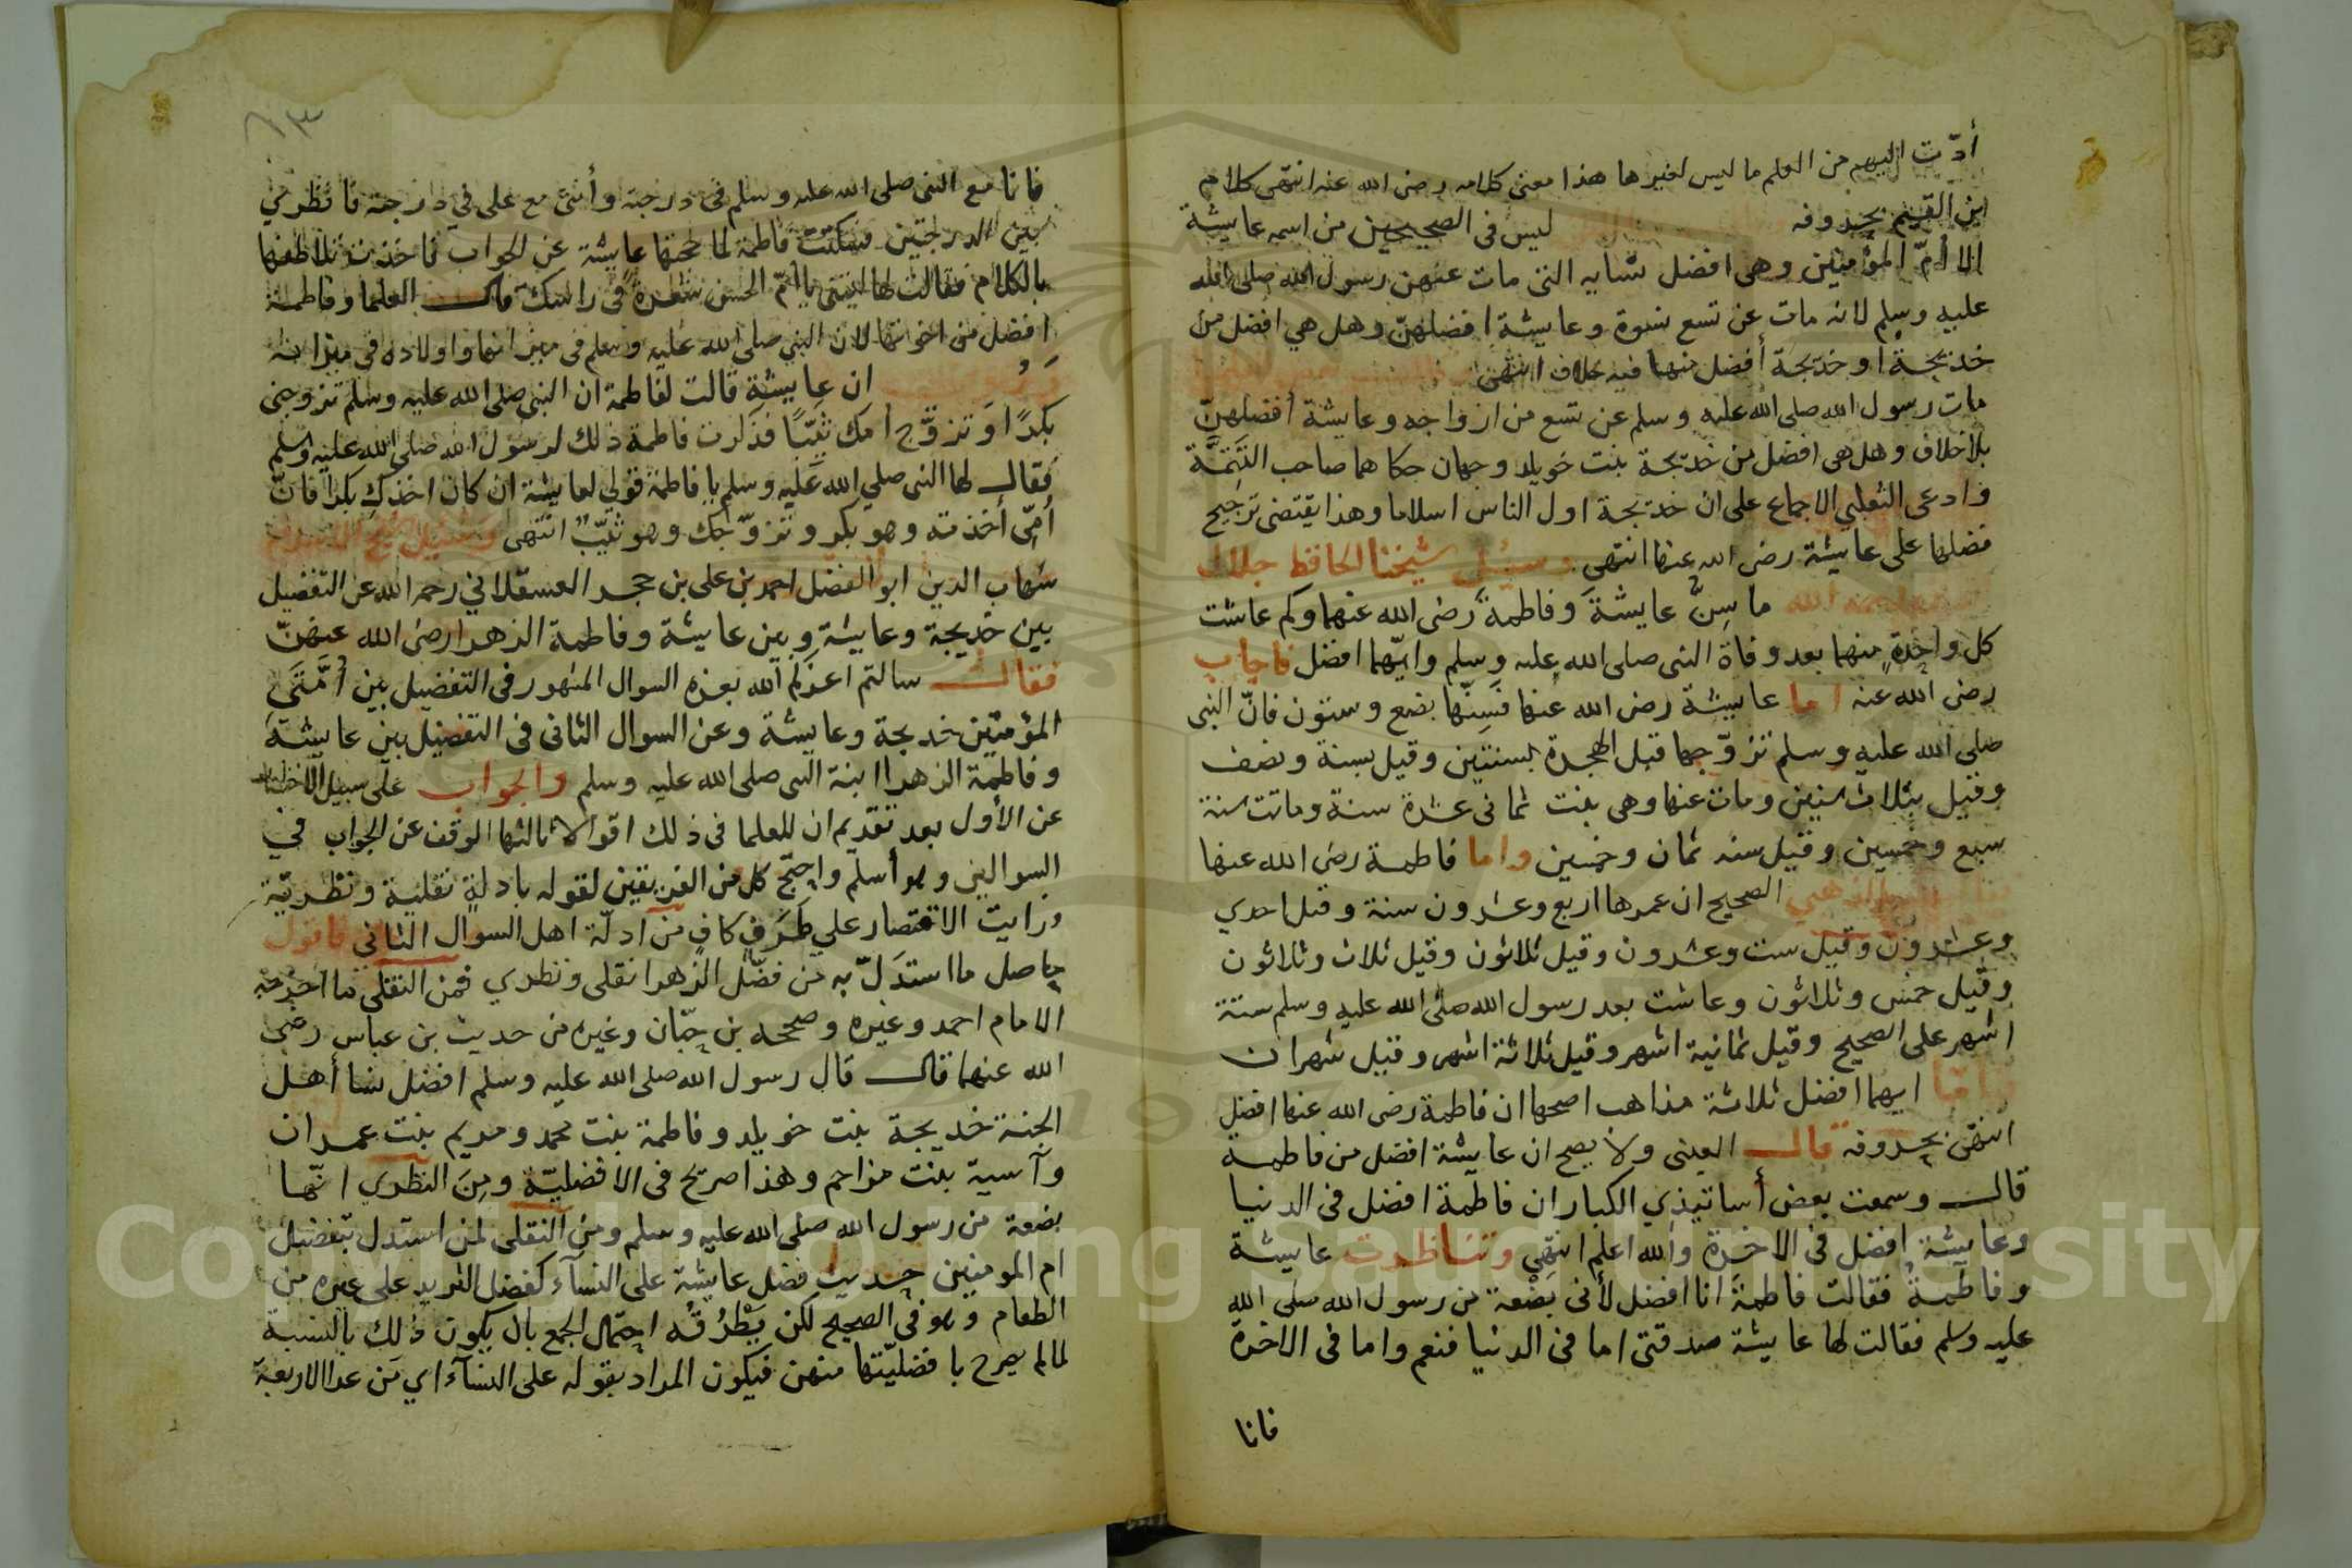 أدّت اليهم من العلم ما ليس لغيرها هذا معنى كلامه رضى الله عنه انتهى كلام
ابن القيم بحروفه ليس فى الصحيحين من اسمه عايشة
الا أمّ المؤمنين وهى افضل نسايه التى مات عنهن رسول الله صلى الله
عليه وسلم لانه مات عن تسع نسوة وعايشة افضلهنّ وهل هي افضل من
خديجة او خديجة أفضل منها فيه خلاف انتهى
مات رسول الله صلى الله عليه وسلم عن تسع من ازواجه وعايشة أفضلهنّ
بلا خلاف وهل هى افضل من خديجة بنت خويلد وجهان حكاهما صاحب التتمَّة
وادعى الثعلبي الاجماع على ان خديجة اول الناس اسلاما وهذا يقتضى ترجيح
فضلها على عايشة رضى الله عنها انتهى وسئل شيخنا الحافظ جلال
الله ما سِنُّ عايشةَ وفاطمةَ رضى الله عنهما وكم عاشت
كل واحدةٍ منهما بعد وفاة النبى صلى الله عليه وسلم وايّهما افضل فاجاب
رضى الله عنه اما عايشة رضى الله عنها فسِنّها بضع وستون فانّ النبى
صلى الله عليه وسلم تزوّجها قبل الهجرة بسنتين وقيل بسنة ونصف
وقيل بثلاث سنين ومات عنها وهى بنت ثمانى عشرة سنة وماتت سنة
سبع وخمسين وقيل سنه ثمان وخمسين واما فاطمة رضى الله عنها
الذهبي الصحيح ان عمرها اربع وعشرون سنة وقيل احدي
وعشرون وقيل ست وعشرون وقيل ثلاثون وقيل ثلاث وثلاثون
وقيل خمس وثلاثون وعاشت بعد رسول الله صلى الله عليه وسلم ستة
اشهر على الصحيح وقيل ثمانية اشهر وقيل ثلاثة اشهر وقيل شهران
وامّا ايهما افضل ثلاثة مذاهب اصحها ان فاطمة رضى الله عنها افضل
انتهى بحروفه قال العينى ولا يصح ان عايشة افضل من فاطمة
قال وسمعت بعض أساتيذي الكبار ان فاطمة افضل فى الدنيا
وعايشة افضل فى الاخرة والله اعلم انتهى وتناظرت عايشة
وفاطمةُ فقالت فاطمةُ انا افضل لأنى بضْعة من رسول الله صلى الله
عليه وسلم فقالت لها عايشة صدقتى اما فى الدنيا فنعم واما فى الاخرة
فانا
٦٣
فانا مع النبى صلى الله عليه وسلم فى درجته وأنتى مع على في درجته فانظري
بين الدرجتين فسكتت فاطمة لما محجتها عايشة عن الجواب فاخذت تلاطفها
بالكلام فقالت لها ليتنى يا أمّ الحسن شعرةً فى راسك قال العلما وفاطمة
افضل من اخوتها لان النبى صلى الله عليه وسلم فى ميزانها واولاده فى ميزانه
ان عايشة قالت لفاطمة ان النبى صلى الله عليه وسلم تزوجنى
بكرًا وَتزوَّج امك ثيّبًا فذكرت فاطمة ذلك لرسول الله صلى الله عليه وسلم
فقال لها النبى صلى الله عليه وسلم يا فاطمة قولي لعايشة ان كان اخذكِ بكرا فانّ
أمّى أخذته وهو بكر وتزوّجكِ وهو ثيّبٌ انتهى وسئل شيخ الاسلام
شهاب الدين ابو الفضل احمد بن على بن حجر العسقلاني رحمه الله عن التفضيل
بين خديجة وعايشة وبين عايشة وفاطمة الزهرا رضى الله عنهنّ
فقال سالتم اعزكم الله بعزه السوال المشهور فى التفضيل بين أُمَّتَي
المؤمنين خديجة وعايشة وعن السوال الثانى فى التفضيل بين عايشة
وفاطمة الزهرا ابنة النبى صلى الله عليه وسلم والجواب على سبيل الاختصار
عن الأول بعد تقديم ان للعلما فى ذلك اقوالا ثالثها الوقف عن الجواب في
السوالين وهو أسلم واحتجّ كل من الفريقين لقوله بادلةٍ نقلية ونظريّة
ورايت الاقتصار علي طَرَفٍ كافٍ من ادلّة اهل السوال الثانى فاقول
حاصل ما استدَلّ به من فضّل الزهرا نقلى ونظري فمن النقلى ما اخرجه
الامام احمد وغيره وصححه بن حبّان وغيره من حديث بن عباس رضى
الله عنهما قال قال رسول الله صلى الله عليه وسلم افضل نسا أهل
الجنة خديجة بنت خويلد وفاطمة بنت محمد ومريم بنت عمران
وآسية بنت مزاحم وهذا صريح فى الافضليّة ومِنَ النظري انّها
بضعة من رسول الله صلى الله عليه وسلم ومن النقلى لمن استدل بتفضيل
ام المومنين حديث فضل عايشة على النسآء كفضل الثريد على غيره من
الطعام وهو فى الصحيح لكن يَطْرُقُه احتمال الجمع بان يكون ذلك بالنسبة
لما لم يصرح بافضليّتها منهن فيكون المراد بقوله على النسآء اي مَن عدا الاربعة
Copyright © King Saud University